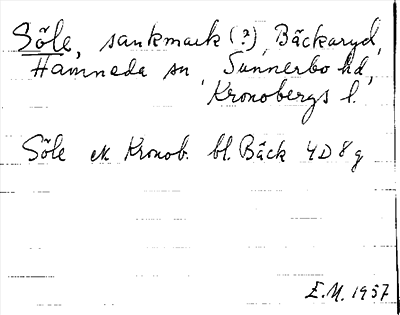 Söle, sankmark (?), Bäckaryd,
Hamneda sn, Sunnerbo hd,
Kronobergs l.
Söle ek Kronob. bl. Bäck 4D8g
E.M. 1957